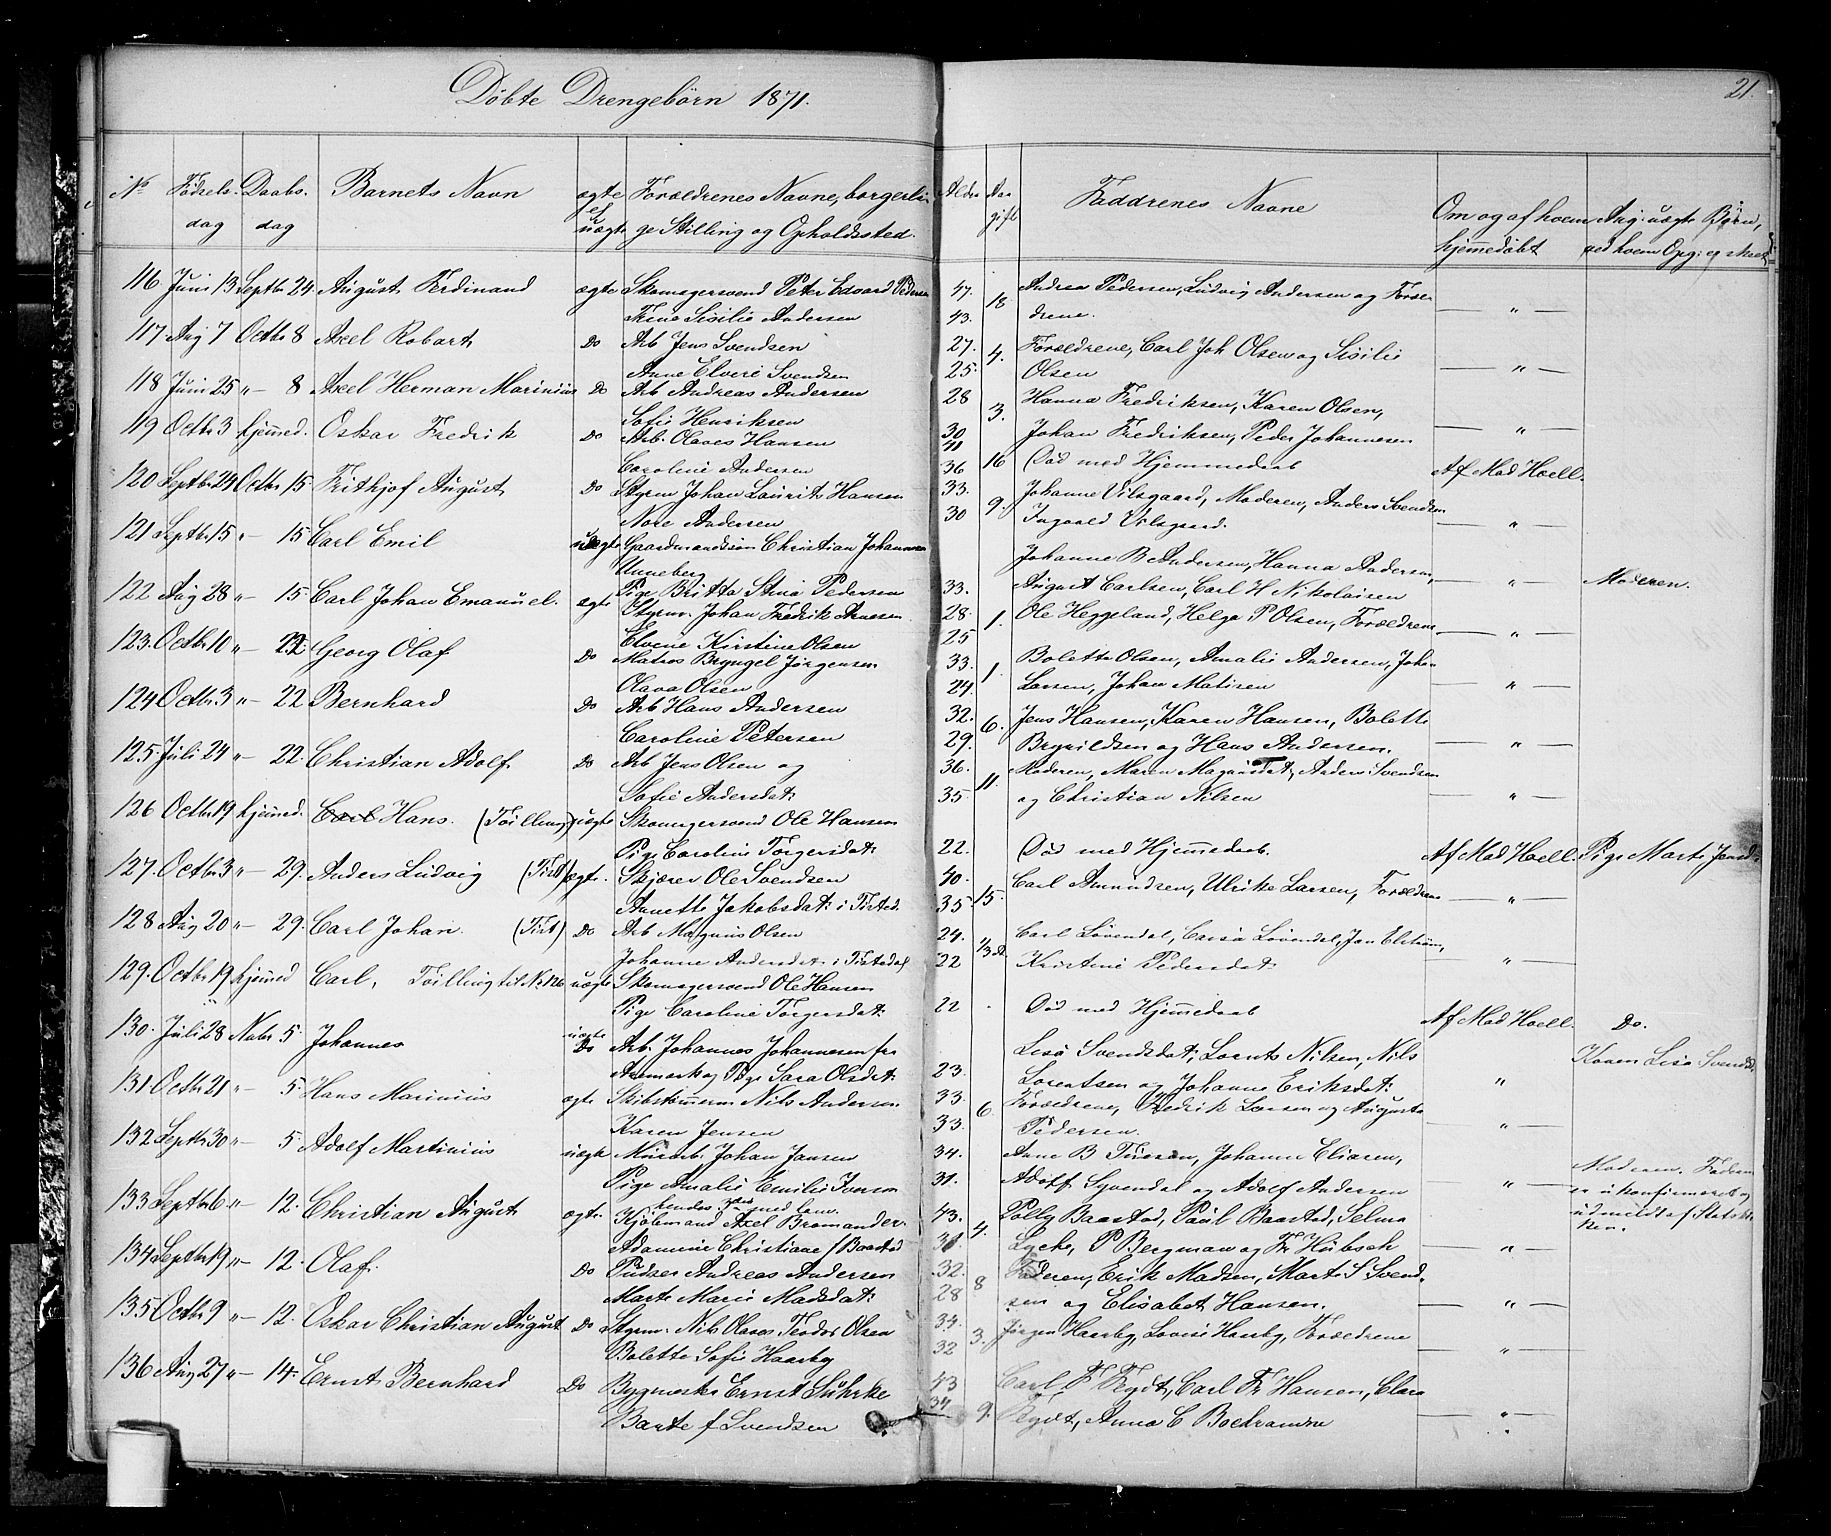 Döbte Drengebörn 1871.
21.
No Födsels- dag Daabs- dag Barnets Navn ægte el uægte Forældrenes Navne, borgerli- ge Stilling og Opholdssted. Alder Faddrenes Navne Om og af hvem hjemmedöbt Ang: uægte Börn,
116 Juni 13 Septbr 24 August Ferdinand ægte Skomagersvend Peter Edvard Pedersen 47. 18 Andrea Pedersen, Ludvig Andersen og Foræl- — " —
Trine Sisilie Andersen 43. drene.
117 Aug 7 Octbr 8 Axel Robart Do Arb Jens Svendsen 27. 4. Forældrene, Carl Joh Olsen og Sisilie — " —
Anne Elvire Svendsen 25. Olsen
118 Juni 25 "- 8 Axel Herman Marinius Do Arb Andreas Andersen 28 3. Hanna Fredriksen, Karen Olsen, — " —
Sofie Henriksen 30 Johan Fredriksen, Peder Johannesen
119 Octbr 3 hjemmed. Oskar Fredrik Do Arb. Olaves Hansen 41 16 Död med Hjemmedaab Af Mad Hoell.
Caroline Andersen 36
120 Septbr 24 Octbr 15 Frithjof August Do Styrm Johan Laurits Hansen 33. 9. Johanne Vilsgaard, Moderen, Anders Svendsen — " —
Nore Andersen 30 Ingvald Vilsgaard.
121 Septbr 15 "- 15 Carl Emil uægte Gaardmandssön Christian Johannesen Johanne B Andersen, Hanna Andersen, — " — Moderen.
Unneberg
Pige Britta Stina Pedersen 33. August Carlsen, Carl H Nikolaisen
122 Aug 28 "- 15 Carl Johan Emanuel. ægte Styrm. Johan Fredrik Arnesen 28. 1. Ole Heggeland, Helga P Olsen, Forældrene — " —
Elvene Kirstine Olsen 25
123. Octbr 10 "- 22 Georg Olaf Do Matros Bryngel Jörgensen 33. 1. Bolette Olsen, Amalie Andersen, Johan — " —
Olava Olsen 24. Larsen, Johan Matisen
124 Octbr 3 "- 22 Bernhard Do Arb Hans Andersen 32. 6. Jens Hansen, Karen Hansen, Bolette — " —
Caroline Petersen 29. Brynildsen og Hans Andersen.
125. Juli 24 "- 22. Christian Adolf. Do Arb Jens Olsen og 36. 11. Moderen, Maren Magnusdat, Anders Svendsen — " —
Sofie Andersdat: 35. og Christian Nilsen
126 Octbr 19 hjemmed. Carl Hans. (Tvilling) uægte Skomagersvend Ole Hansen
Pige Caroline Torgersdat: 22. Död med Hjemmedaab. Af Mad Hoell. Pige Marte Jensd:
127. Octbr 3 "- 29. Anders Ludvig (Tist) ægte. Skjærer Ole Svendsen 40. 15. Carl Amundsen, Ulrike Larsen, Forældrene — " —
Annette Jakobsdat: i Tistedl. 35
128 Aug 20 "- 29. Carl Johan. (Tist) Do Arb Magnus Olsen 24. Carl Lövendal, Carsa Lövendal, Jan Elström, — " —
Johanne Andersdat: i Tistedal 22 Kristine Pedersdat:
129. Octbr 19 hjemmed Carl, Tvilling til No 126 uægte Skomagersvend Ole Hansen
Pige Caroline Torgersdat: 22 . Död med Hjemmedaab Af Mad Hoell. Do.
130. Juli 28 Novbr 5. Johannes uægte Do Arb. Johannes Johannesen fra Lisa Svendsdat; Lorents Nilsen, Nils Konen Lisa Svendsd.
Aremark og Pige Sara Olsdat: 23. Lorentsen og Johanne Eriksdat: "
131 Octbr 21 "- 5. Hans Marinius ægte Skibstömmerm Nils Andersen 33. 6. Forældrene, Fredrik Larsen og Augusta — " —
Karen Jensen 33. Pedersen.
132 Septbr 30 "- 5. Adolf Martinius uægte Murarb. Johan Jansen 34. Anne B Turesen, Johanne Eliasen,
Pige Amalie Emilie Iversen 31. Adolf Syvendal og Adolf Andersen — " — Moderen. Faderen er ukonfirmeret og udmeldt af Statskirken.
133 Septbr 6 "- 12. Christian August ægte. Kjöbmand Axel Bromander 43. 4. Polly Baastad, Paul Baastad, Selma
Adamine Christiane f Baastad 31. Lycke, P Bergman og Fr Hübsch — " —
134 Septbr 19 "- 12. Olaf. Do Pudser Andreas Andersen 32. 8 Faderen, Erik Madsen, Marte S Svend-
Marte Marie Madsdat: 28 sen og Elisabet Hansen. — " —
135 Octbr 9 "- 12. Oskar Christian August Do Styrm: Nils Olaves Teodor Olsen 34. 3. Jörgen Haarby, Lovise Haarby, Forældrene
Bolette Sofie Haarby 32 — " —
136 Aug 27 "- 14. Ernst Bernhard Do Bygmester Ernst Suhrke 43 9. Carl F Fegdt, Carl Fr Hansen, Clara
Barte f Svendsen 34 Fegdt, Anna C Boehramne — " —